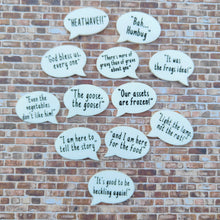 "HEATWAVE!!"
"Bah...
Humbug"
"God bless us,
every one"
"There's more of
gravy than of grave
about you"
"It was
the frogs idea!"
"Even the
vegetables
don't like him!"
"The goose,
the goose!"
"Our assets
are frozen!"
"Light the lamp,
not the rat!"
"I am here to
tell the story"
"and I am here
for the food"
"It's good to be
heckling again!"